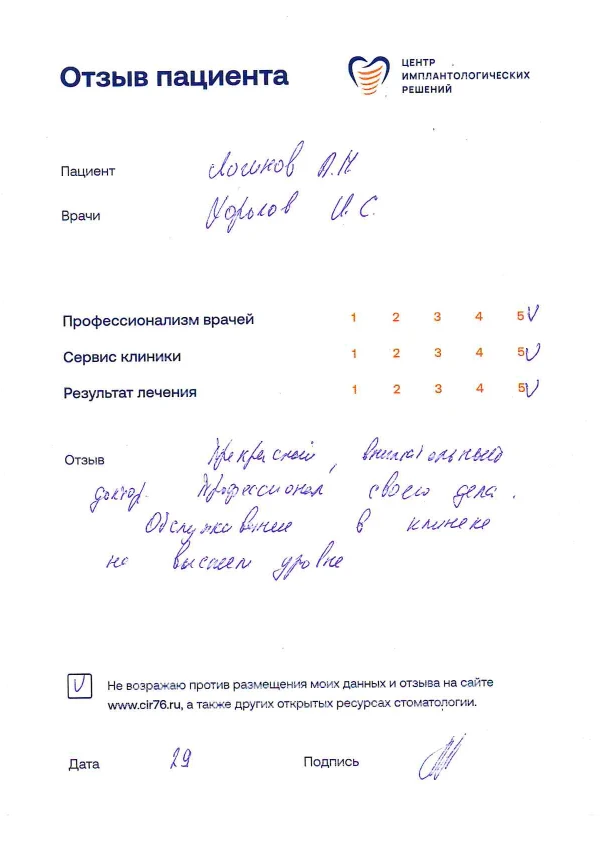 Отзыв пациента
ЦЕНТР
ИМПЛАНТОЛОГИЧЕСКИХ
РЕШЕНИЙ
Пациент Логинов А.Н
Врачи И.С.
Профессионализм врачей 1 2 3 4 5
Сервис клиники 1 2 3 4 5
Результат лечения 1 2 3 4 5
Отзыв Прекрасный, внимательный
доктор. Профессионал своего дела.
Обслуживание в клинеке
на высшем уровне
Не возражаю против размещения моих данных и отзыва на сайте
www.cir76.ru, а также других открытых ресурсах стоматологии.
Дата 29 Подпись